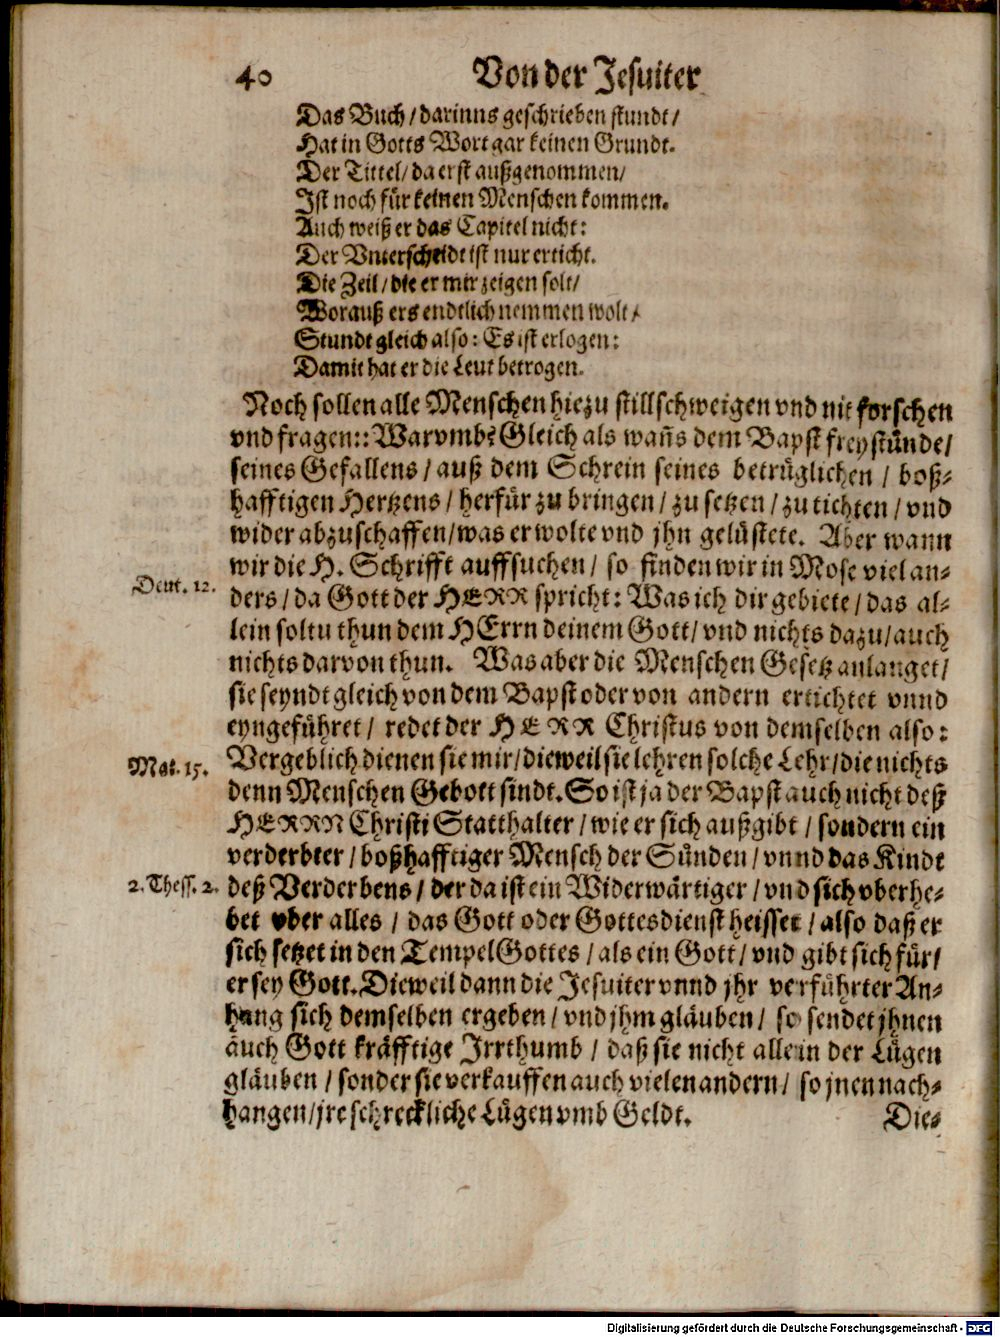 40 Von der Jesuiter
Das Buch / darinns geschrieben stundt /
Hat in Gotts Wort gar keinen Grundt.
Der Tittel / da erst außgenommen /
Ist noch für keinen Menschen kommen.
Auch weiß er das Capitel nicht:
Der Vnterscheidt ist nur erticht.
Die Zeil / die er mir zeigen solt /
Worauß ers endtlich nemmen wolt /
Stundt gleich also: Es ist erlogen:
Damit hat er die Leut betrogen.
Noch sollen alle Menschen hiezu stillschweigen vnd nit forschen
vnd fragen:: Warvmb? Gleich als wañs dem Bapst frey stünde /
seines Gefallens / auß dem Schrein seines betrüglichen / boß-
hafftigen Hertzens / herfür zu bringen / zu setzen / zu tichten / vnd
wider abzuschaffen / was er wolte vnd jhn gelüstete. Aber wann
wir die H. Schrifft auffsuchen / so finden wir in Mose viel an-
Deut. 12.
ders / da Gott der HERR spricht: Was ich dir gebiete / das al-
lein soltu thun dem HErrn deinem Gott / vnd nichts dazu / auch
nichts darvon thun. Was aber die Menschen Gesetz anlanget /
sie seyndt gleich von dem Bapst oder von andern ertichtet vnnd
eyngeführet / redet der HERR Christus von demselben also:
Mat. 15.
Vergeblich dienen sie mir / dieweil sie lehren solche Lehr / die nichts
denn Menschen Gebott sindt. So ist ja der Bapst auch nicht deß
HERRN Christi Statthalter / wie er sich außgibt / sondern ein
verderbter / boßhafftiger Mensch der Sünden / vnnd das Kindt
2. Thess. 2.
deß Verderbens / der da ist ein Widerwärtiger / vnd sich vberhe-
bet vber alles / das Gott oder Gottesdienst heisset / also daß er
sich setzet in den Tempel Gottes / als ein Gott / vnd gibt sich für /
er sey Gott. Dieweil dann die Jesuiter vnnd jhr verführter An-
hang sich demselben ergeben / vnd jhm gläuben / so sendet jhnen
auch Gott kräfftige Jrrthumb / daß sie nicht allein der Lügen
gläuben / sonder sie verkauffen auch vielen andern / so jnen nach-
hangen / jre schreckliche Lügen vmb Geldt.
Die-
Digitalisierung gefördert durch die Deutsche Forschungsgemeinschaft - DFG